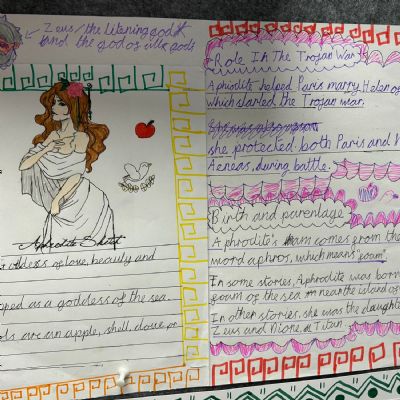 Zeus/the listening god
and the god of all gods
Aphrodite Sketch
oddess of love, beauty and
oped as a goddess of the sea.
ols are an apple, shell, dove, or
Role In The Trojan War
Aphrodite helped Paris marry Helen of
which started the Trojan war.
she protected both Paris and H
Aeneas, during battle.
Birth and parentage
Aphrodite's comes from the
word aphros, which means "foam"
In some stories, Aphrodite was born
foam of the sea near the island of
In other stories, she was the daughte
Zeus and Dione, a Titan.